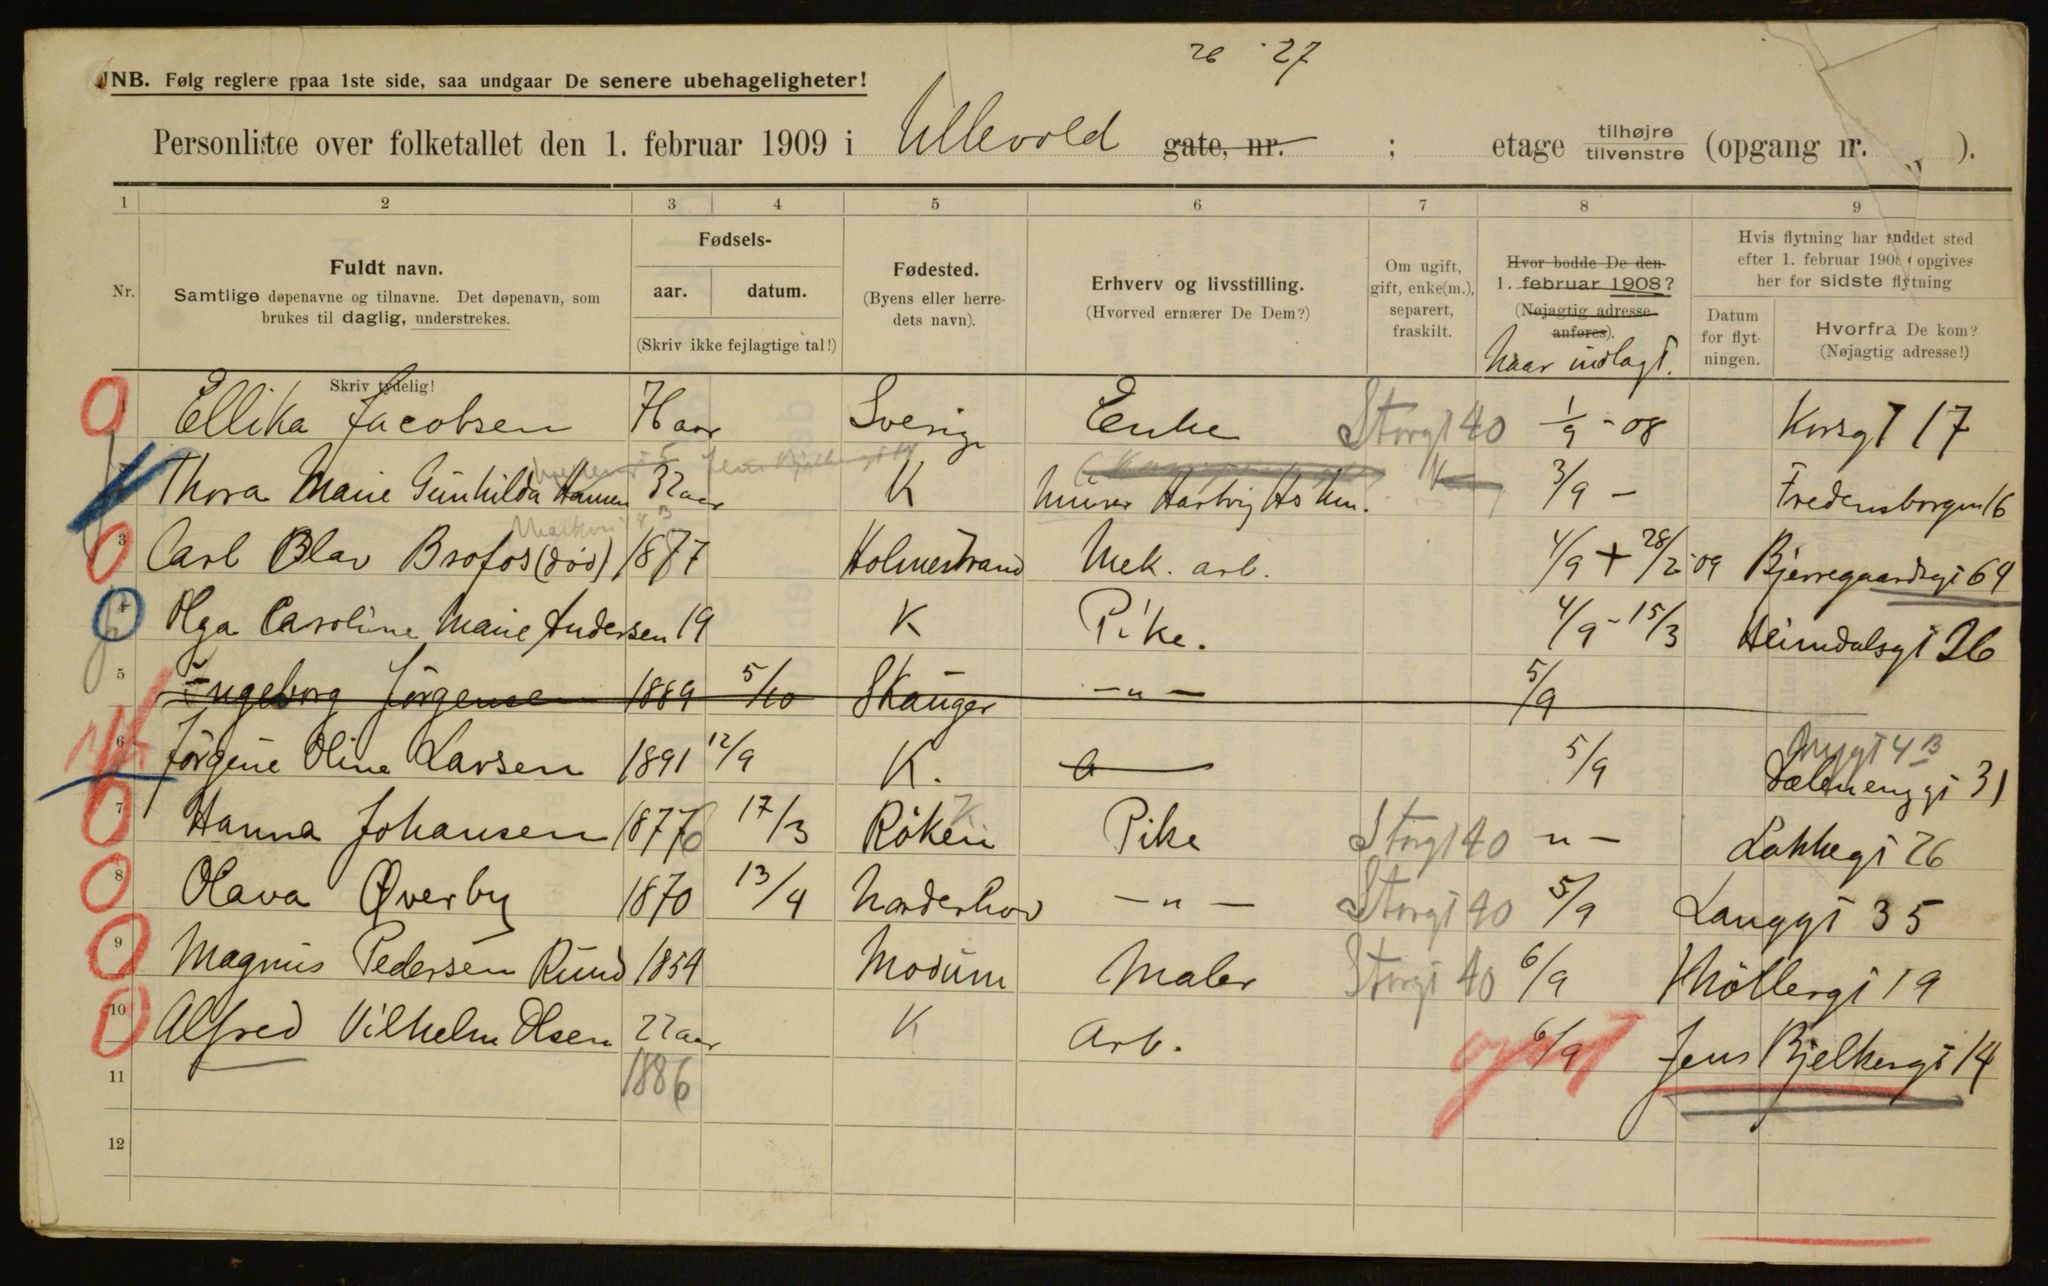 26 27
NB. Følg reglerne paa 1ste side, saa undgaar De senere ubehageligheter!
Personliste over folketallet den 1. februar 1909 i Ullevold gate, nr. ; etage tilhøjre tilvenstre (opgang nr. ).
1 2 3 4 5 6 7 8 9
Nr. Fuldt navn. Samtlige døpenavne og tilnavne. Det døpenavn, som brukes til daglig, understrekes. Skriv tydelig!
Fødsels- aar. datum. (Skriv ikke fejlagtige tal!)
Fødested. (Byens eller herredets navn).
Erhverv og livsstilling. (Hvorved ernærer De Dem?)
Om ugift, gift, enke(m.), separert, fraskilt.
Hvor bodde De den 1. februar 1908? (Nøjagtig adresse anføres). Naar indlagt.
Hvis flytning har fundet sted efter 1. februar 1908 opgives her for sidste flytning
Datum for flytningen. Hvorfra De kom? (Nøjagtig adresse!)
1 Ellika Jacobsen 7 aar Sverige Enke Storgt 40 1/9 - 08 Korsgt 17
Thora Marie Gunhilda Hansen 32 aar K Murer Hartvig Hs 3/9 - Fredensborgvn 16
3 Carl Olav Brofos (død) 1877 Holmestrand Mek. arb. 4/9 + 28/2 09 Bjerregaardsgt 64
4 Olga Caroline Marie Andersen 19 K Pike. 4/9 - 15/3 Heimdalsgt 26
5 Ingeborg Jørgensen 1889 5/10 Skauger -"- 5/9
6 Jørgine Oline Larsen 1891 12/9 K. 5/9 4B Dælenenggt 31
7 Hanna Johansen 1876 17/3 Røken Pike Storgt 40 -"- Lakkegt 26
8 Olava Øverby 1870 13/4 Norderhov -"- Storgt 40 5/9 Langgt 35
9 Magnus Pedersen Rund 1854 Modum Maler Storgt 40 6/9 Møllergt 19
10 Alfred Vilhelm Olsen 22 aar K Arb. 6/9 Jens Bjelkesgt 14
11 1886
12